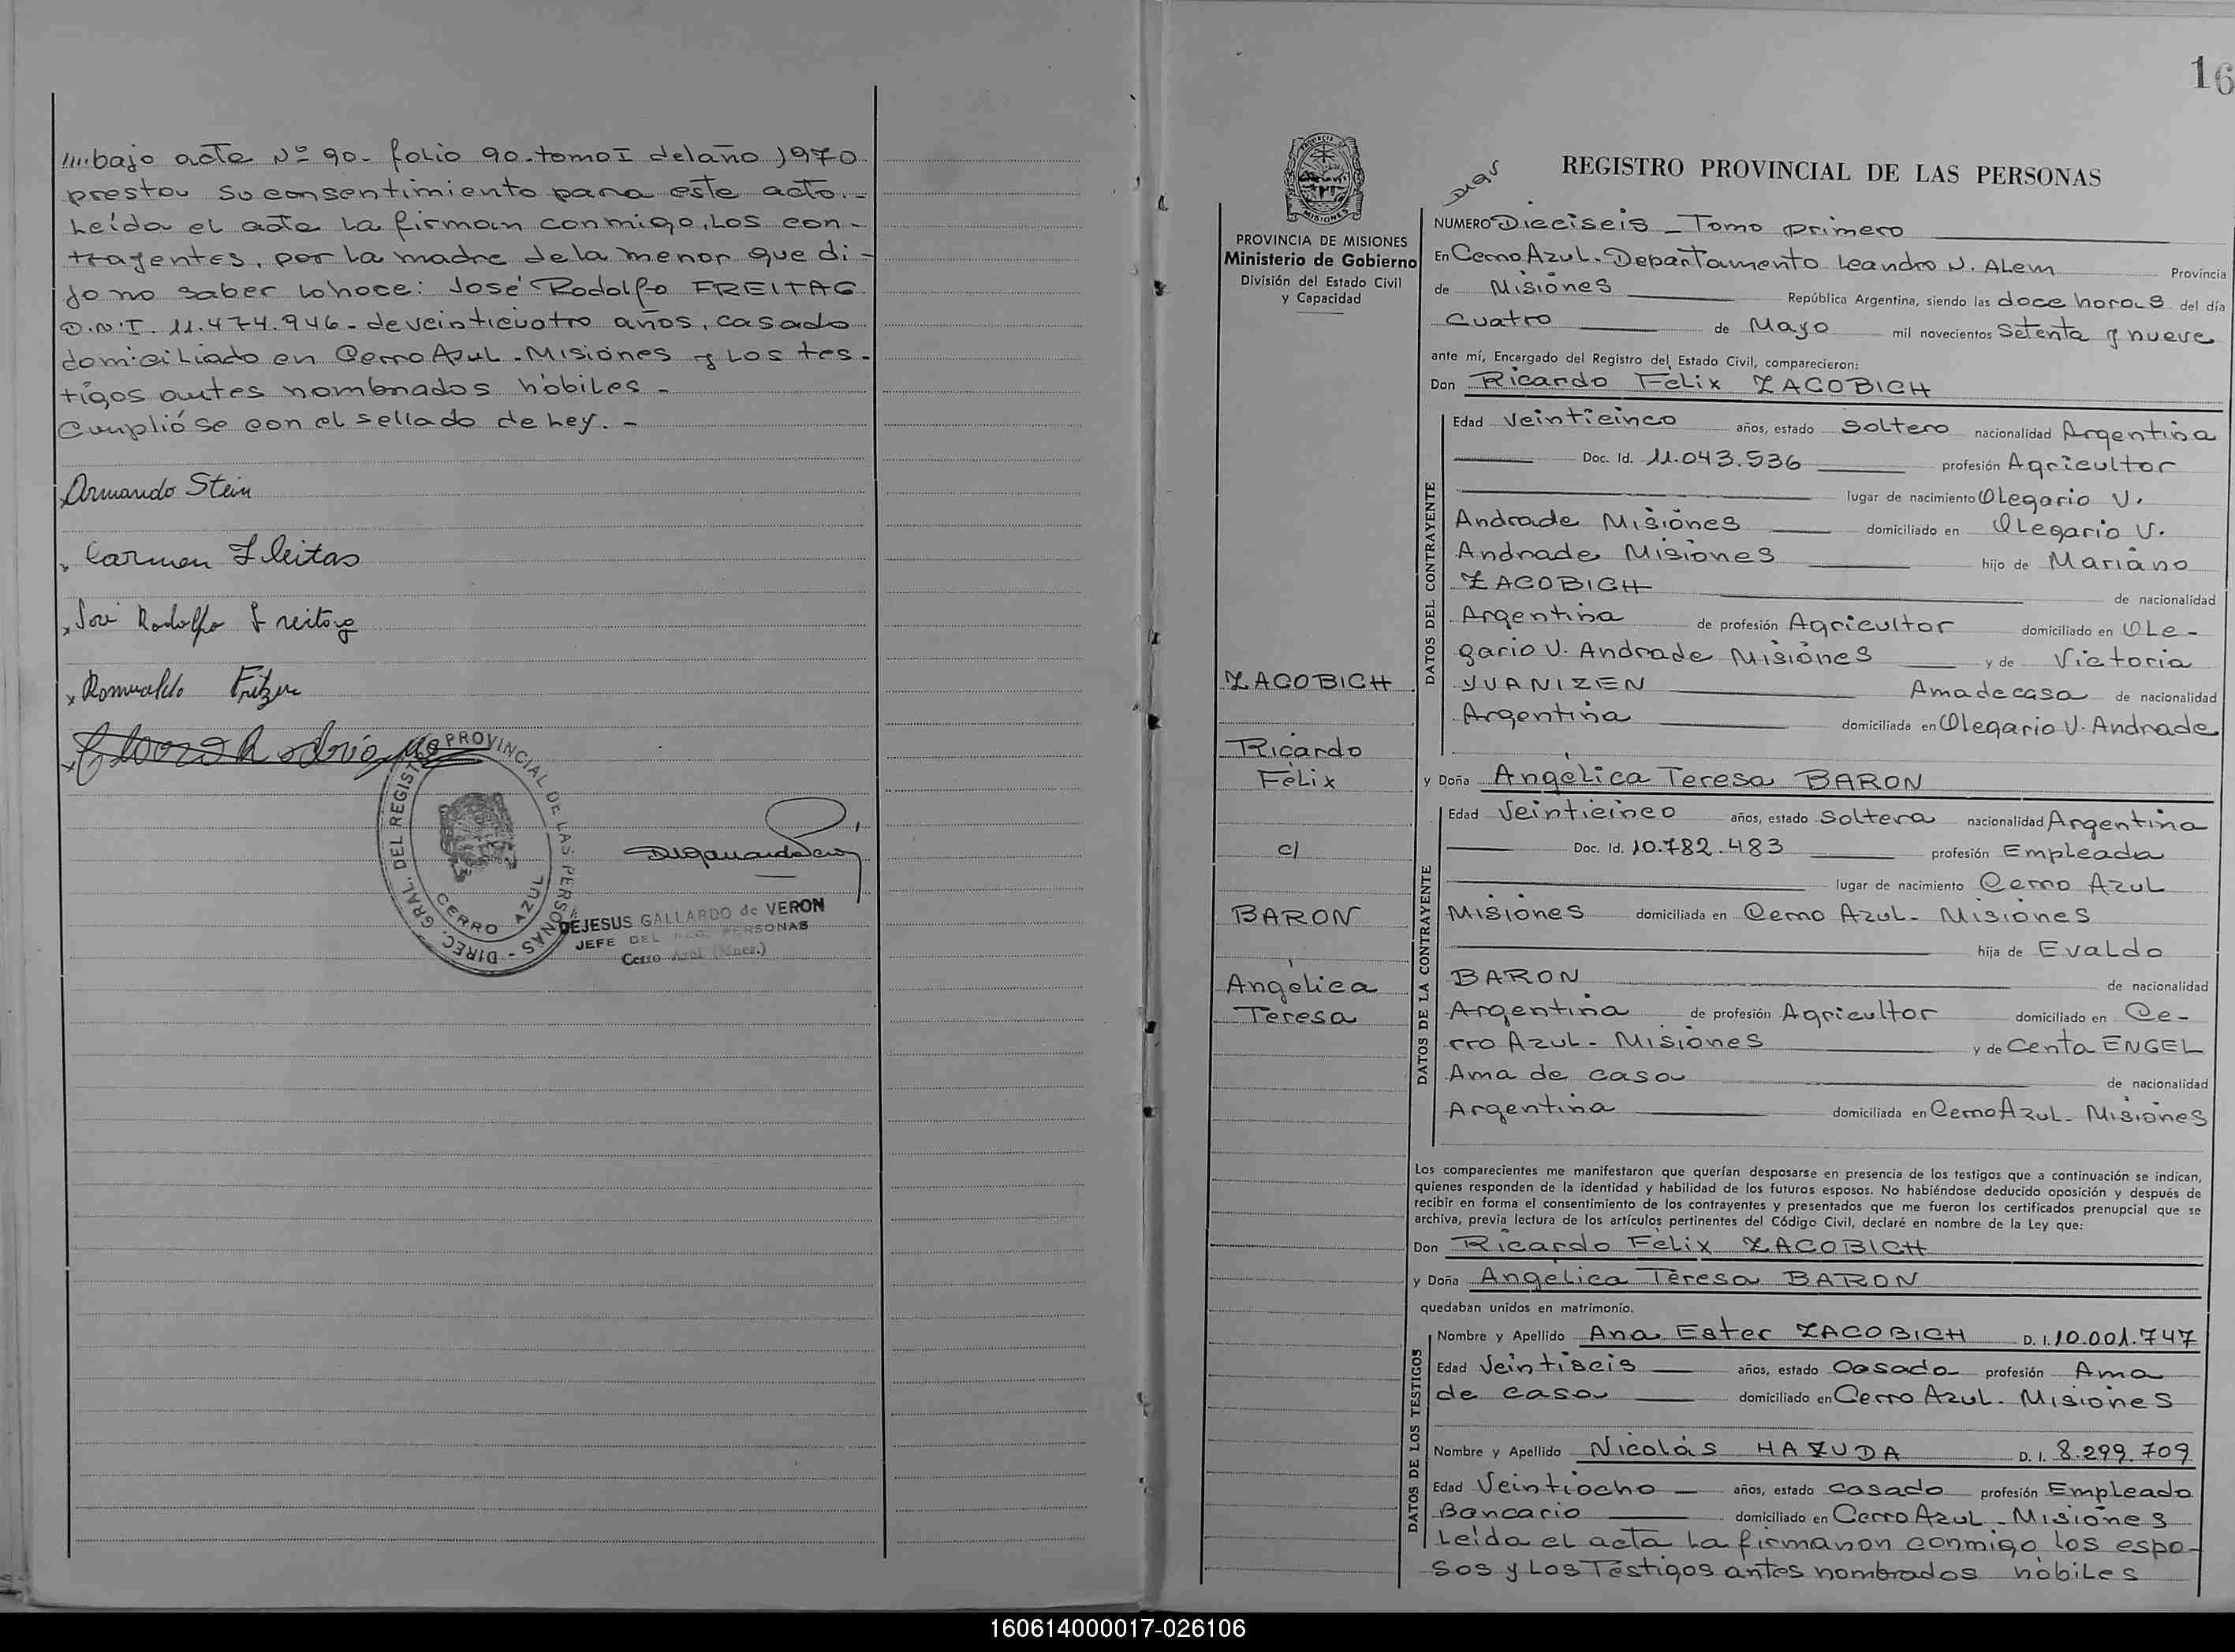 ////bajo acta Nº 90- folio 90. tomo I del año 1970
prestou su consentimiento para este acto.-
Leída el acta la firman conmigo, los con-
trayentes, por la madre de la menor que di-
jo no saber lo hace: José Rodolfo FREITAG
D.N.I. 11.474.946- de veinticuatro años, casado
domiciliado en Cerro Azul. Misiones y los tes-
tigos antes nombrados hábiles-
Cumplióse con el sellado de ley.-
Armando Stein
Carmen Fleitas
José Rodolfo Freitag
Romualdo
DIREC. GRAL. DEL REGISTRO PROVINCIAL DE LAS PERSONAS -
CERRO AZUL
DEJESUS GALLARDO de VERON
JEFE DEL REG. PERSONAS
Cerro Azul (Mnes.)
16
PROVINCIA DE MISIONES
Ministerio de Gobierno
División del Estado Civil
y Capacidad
ZACOBICH
Ricardo
Félix
c/
BARON
Angélica
Teresa
REGISTRO PROVINCIAL DE LAS PERSONAS
NUMERO Dieciseis - Tomo primero
En Cerro Azul. Departamento Leandro N. Alem Provincia
de Misiones República Argentina, siendo las doce horas del día
Cuatro de Mayo mil novecientos Setenta y nueve
ante mí, Encargado del Registro del Estado Civil, comparecieron:
Don Ricardo Félix ZACOBICH
DATOS DEL CONTRAYENTE
Edad Veinticinco años, estado Soltero nacionalidad Argentina
Doc. Id. 11.043.536 profesión Agricultor
lugar de nacimiento Olegario V.
Andrade Misiones domiciliado en Olegario V.
Andrade Misiones hijo de Mariano
ZACOBICH de nacionalidad
Argentina de profesión Agricultor domiciliado en Ole-
gario V. Andrade Misiones y de Victoria
YUANIZEN Ama de casa de nacionalidad
Argentina domiciliada en Olegario V. Andrade
y Doña Angélica Teresa BARON
DATOS DE LA CONTRAYENTE
Edad Veinticinco años, estado Soltera nacionalidad Argentina
Doc. Id. 10.782.483 profesión Empleada
lugar de nacimiento Cerro Azul
Misiones domiciliada en Cerro Azul- Misiones
hija de Evaldo
BARON de nacionalidad
Argentina de profesión Agricultor domiciliado en Ce-
rro Azul- Misiones y de Centa ENGEL
Ama de casa de nacionalidad
Argentina domiciliada en Cerro Azul- Misiones
Los comparecientes me manifestaron que querían desposarse en presencia de los testigos que a continuación se indican,
quienes responden de la identidad y habilidad de los futuros esposos. No habiéndose deducido oposición y después de
recibir en forma el consentimiento de los contrayentes y presentados que me fueron los certificados prenupcial que se
archiva, previa lectura de los artículos pertinentes del Código Civil, declaré en nombre de la Ley que:
Don Ricardo Félix ZACOBICH
y Doña Angélica Teresa BARON
quedaban unidos en matrimonio.
DATOS DE LOS TESTIGOS
Nombre y Apellido Ana Ester ZACOBICH D. I. 10.001.747
Edad Veintiseis años, estado Casada profesión Ama
de casa domiciliado en Cerro Azul. Misiones
Nombre y Apellido Nicolás HAZUDA D. I. 8.299.709
Edad Veintiocho años, estado casado profesión Empleado
Bancario domiciliado en Cerro Azul - Misiones
Leída el acta la firmaron conmigo los espo-
sos y los Testigos antes nombrados hábiles
160614000017-026106